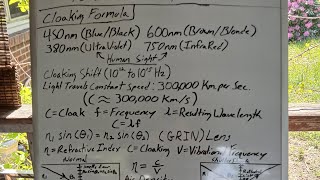 Cloaking Formula
450nm (Blue/Black) 600nm (Brown/Blonde)
380nm (UltraViolet) 750nm (InfraRed)
Human Sight
Cloaking Shift (10¹² to 10¹⁵ Hz)
Light Travels Constant Speed: 300,000 Km per Sec.
(C ≈ 300,000 Km/s)
C=Cloak f=Frequency l=Resulting Wavelength
C=lf
n₁ sin(θ₁) = n₂ sin(θ₂) (GRIN) Lens
n=Refractive Index C=Cloaking V=Vibrational Frequency
Normal
n = c/v